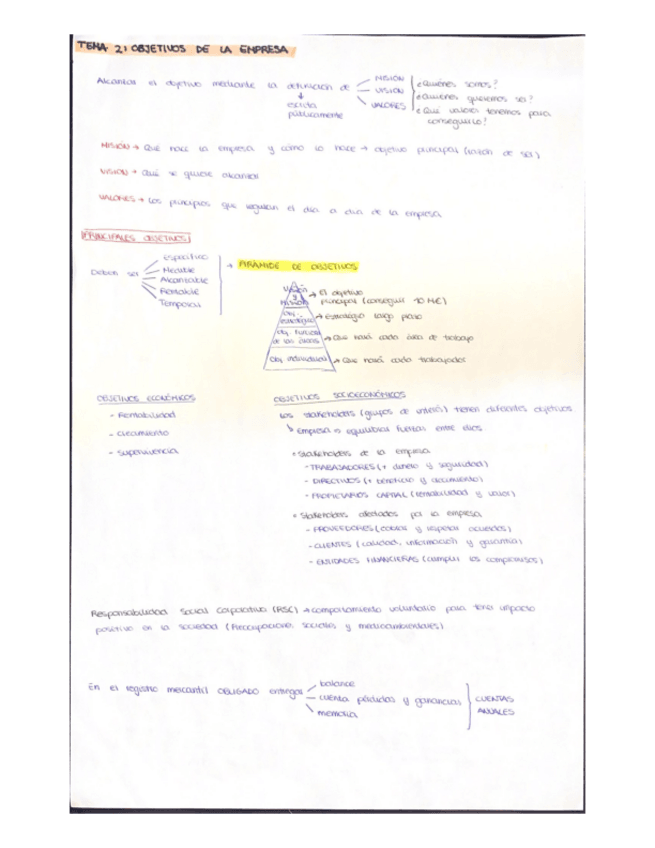 TEMA 2: OBJETIVOS DE LA EMPRESA
Alcanzar el objetivo mediante la definición de
↓
escrita
públicamente
MISIÓN
VISIÓN
VALORES
¿Quiénes somos?
¿Quiénes queremos ser?
¿Qué valores tenemos para
conseguirlo?
MISIÓN → Qué hace la empresa y cómo lo hace → objetivo principal (razón de ser)
VISIÓN → Qué se quiere alcanzar
VALORES → Los principios que regulan el día a día de la empresa
PRINCIPALES OBJETIVOS
Deben ser
Específico
Medible
Alcanzable
Rentable
Temporal
→ PIRÁMIDE DE OBJETIVOS
Visión
Misión
→ El objetivo
principal (conseguir 10 M€)
Obj.
estratégico
→ Estratégico largo plazo
Obj. función
de las áreas
→ Qué hará cada área de trabajo
Obj. individuales
→ Qué hará cada trabajador
OBJETIVOS ECONÓMICOS
- Rentabilidad
- Crecimiento
- Supervivencia
OBJETIVOS SOCIOECONÓMICOS
Los stakeholders (grupos de interés) tienen diferentes objetivos
↳ Empresa → equilibrar fuerzas entre ellos
* Stakeholders de la empresa
- TRABAJADORES (+ dinero y seguridad)
- DIRECTIVOS (+ beneficio y crecimiento)
- PROPIETARIOS CAPITAL (rentabilidad y valor)
* Stakeholders afectados por la empresa
- PROVEEDORES (cobros y respetar acuerdos)
- CLIENTES (calidad, información y garantía)
- ENTIDADES FINANCIERAS (cumplir los compromisos)
Responsabilidad Social Corporativa (RSC) → comportamiento voluntario para tener impacto
positivo en la sociedad (Preocupaciones sociales y medioambientales)
En el registro mercantil OBLIGADO entregar
balance
cuenta pérdidas y ganancias
memoria
CUENTAS
ANUALES